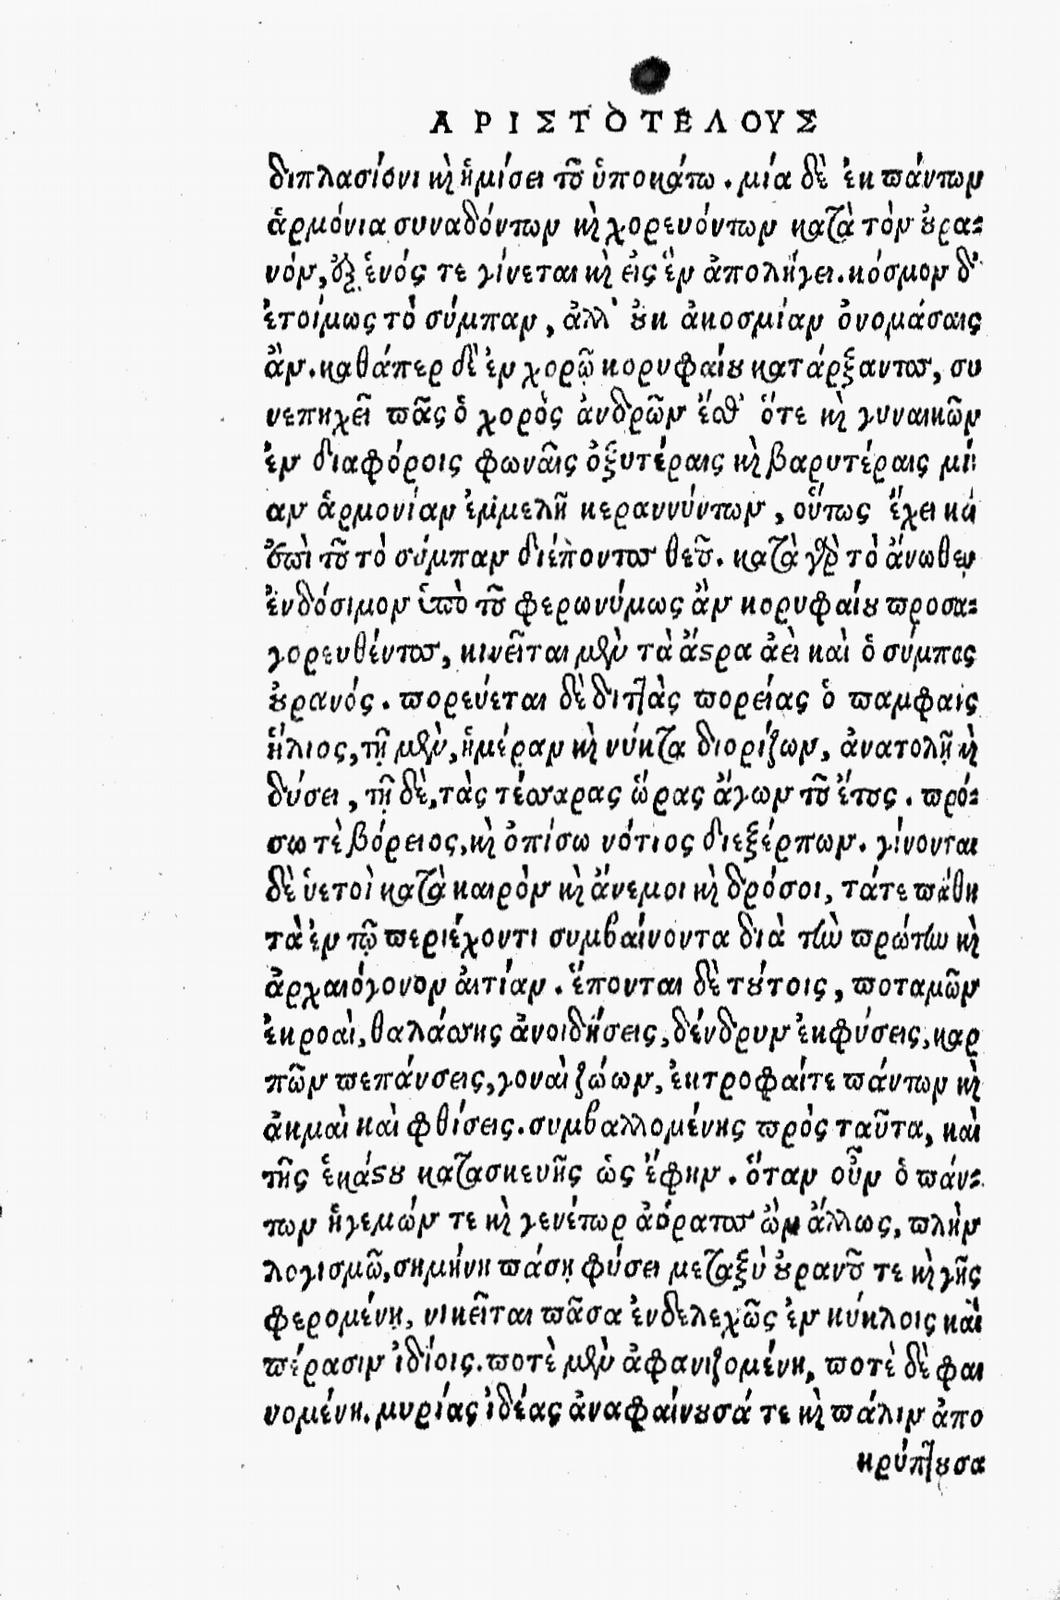 ΑΡΙΣΤΟΤΕΛΟΥΣ
διπλασίονι καὶ ἡμίσει τοῦ ὑποκάτω. μία δὲ ἐκ πάντων
ἁρμόνια συναδόντων καὶ χορευόντων κατὰ τὸν οὐρα-
νόν, ἐξ ἑνός τε γίνεται καὶ εἰς ἓν ἀπολήγει. κόσμον δ'
ἐτοίμως τὸ σύμπαν, ἀλλ' οὐκ ἀκοσμίαν ὀνομάσαις
ἂν. καθάπερ δὲ ἐν χορῷ κορυφαίου κατάρξαντος, συ
νεπηχεῖ πᾶς ὁ χορὸς ἀνδρῶν ἔσθ' ὅτε καὶ γυναικῶν
ἐν διαφόροις φωναῖς ὀξυτέραις καὶ βαρυτέραις μί
αν ἁρμονίαν ἐμμελῆ κεραννύντων, οὕτως ἔχει καὶ
ἐπὶ τοῦ τὸ σύμπαν διέποντος θεοῦ. κατὰ γὰρ τὸ ἄνωθεν
ἐνδόσιμον ὑπὸ τοῦ φερωνύμως ἂν κορυφαίου προσα-
γορευθέντος, κινεῖται μὲν τὰ ἄστρα ἀεὶ καὶ ὁ σύμπας
οὐρανός. πορεύεται δὲ διττὰς πορείας ὁ παμφαὶς
ἥλιος, τῇ μὲν, ἡμέραν καὶ νύκτα διορίζων, ἀνατολῇ καὶ
δύσει, τῇ δὲ, τὰς τέσσαρας ὥρας ἄγων τοῦ ἔτους. πρό-
σω τὲ βόρειος, καὶ ὀπίσω νότιος διεξέρπων. γίνονται
δὲ ὑετοὶ κατὰ καιρὸν καὶ ἄνεμοι καὶ δρόσοι, τάτε πάθη
τὰ ἐν τῷ περιέχοντι συμβαίνοντα διὰ τὴν πρώτην καὶ
ἀρχαιόγονον αἰτίαν. ἕπονται δὲ τούτοις, ποταμῶν
ἐκροαὶ, θαλάσσης ἀνοιδήσεις, δένδρων ἐκφύσεις, καρ
πῶν πεπάνσεις, γοναὶ ζώων, ἐκτροφαίτε πάντων καὶ
ἀκμαὶ καὶ φθίσεις. συμβαλλομένης πρὸς ταῦτα, καὶ
τῆς ἑκάστου κατασκευῆς ὡς ἔφην. ὅταν οὖν ὁ πάν-
των ἡγεμών τε καὶ γενέτωρ ἀόρατος ὢν ἄλλως, πλὴν
λογισμῶ, σημήνη πάσῃ φύσει μεταξὺ οὐρανοῦ τε καὶ γῆς
φερομένῃ, νικεῖται πᾶσα ἐνδελεχῶς ἐν κύκλοις καὶ
πέρασιν ἰδίοις. ποτὲ μὲν ἀφανιζομένη, ποτὲ δὲ φαι
νομένη. μυρίας ἰδέας ἀναφαίνουσά τε καὶ πάλιν ἀπο
κρύπτουσα